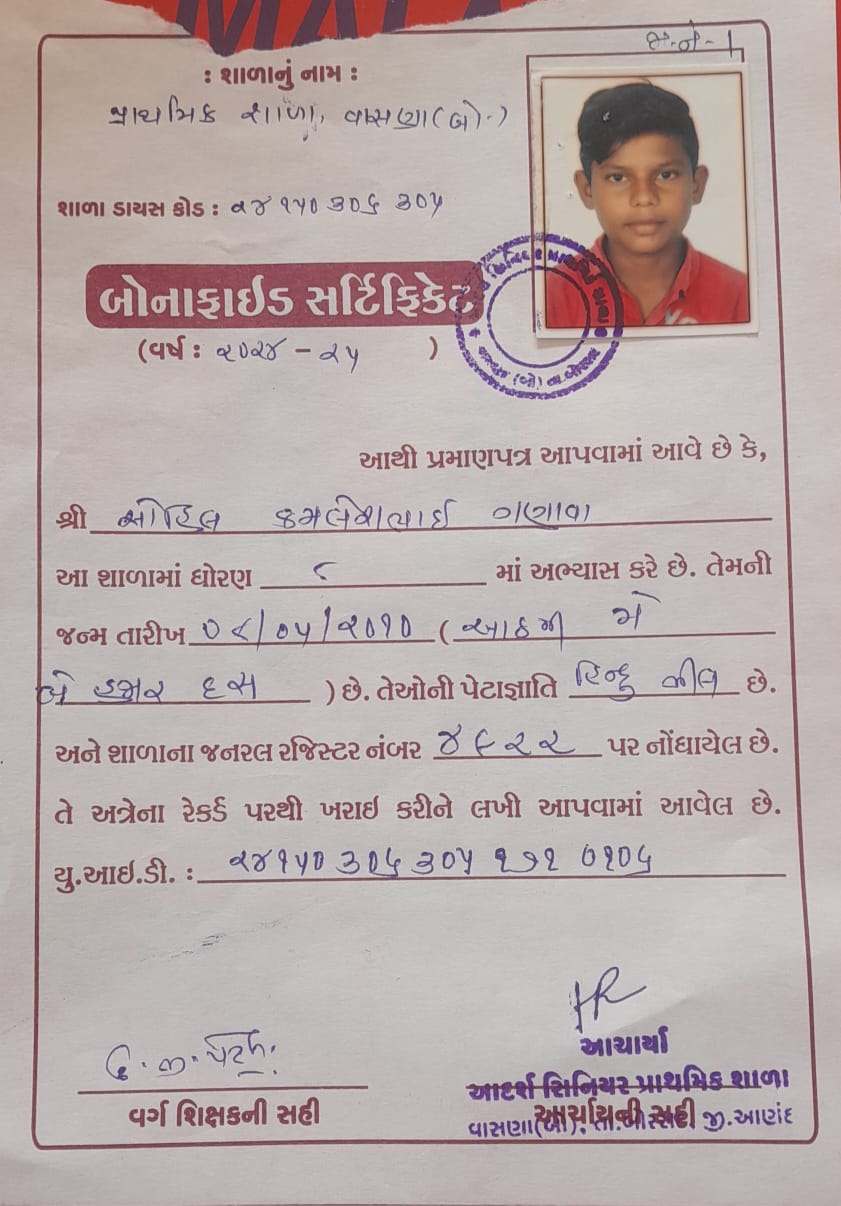 જ.ને - 1
: શાળાનું નામ :
પ્રાથમિક શાળા, વાસણા(બો.)
શાળા ડાયસ કોડ : ૨૪ ૧૫૦ ૩૦૬ ૩૦૫
બોનાફાઇડ સર્ટિફિકેટ
(વર્ષ : ૨૦૨૪ - ૨૫ )
આથી પ્રમાણપત્ર આપવામાં આવે છે કે,
શ્રી સોહિલ કમલેશભાઈ ગણાવા
આ શાળામાં ધોરણ ૮ માં અભ્યાસ કરે છે. તેમની
જન્મ તારીખ ૦૮/૦૫/૨૦૧૦ (આઠમી મે
બે હજાર દસ ) છે. તેઓની પેટાજ્ઞાતિ હિન્દુ ભીલ છે.
અને શાળાના જનરલ રજિસ્ટર નંબર ૪૯૨૨ પર નોંધાયેલ છે.
તે અત્રેના રેકર્ડ પરથી ખરાઇ કરીને લખી આપવામાં આવેલ છે.
યુ.આઇ.ડી. : ૨૪૧૫૦ ૩૦૬ ૩૦૫ ૧૭૧ ૦૧૦૬
વર્ગ શિક્ષકની સહી
આચાર્યા
આદર્શ સિનિયર પ્રાથમિક શાળા
આચાર્યની સહી
વાસણા(બો). તા.બોરસદ જી.આણંદ